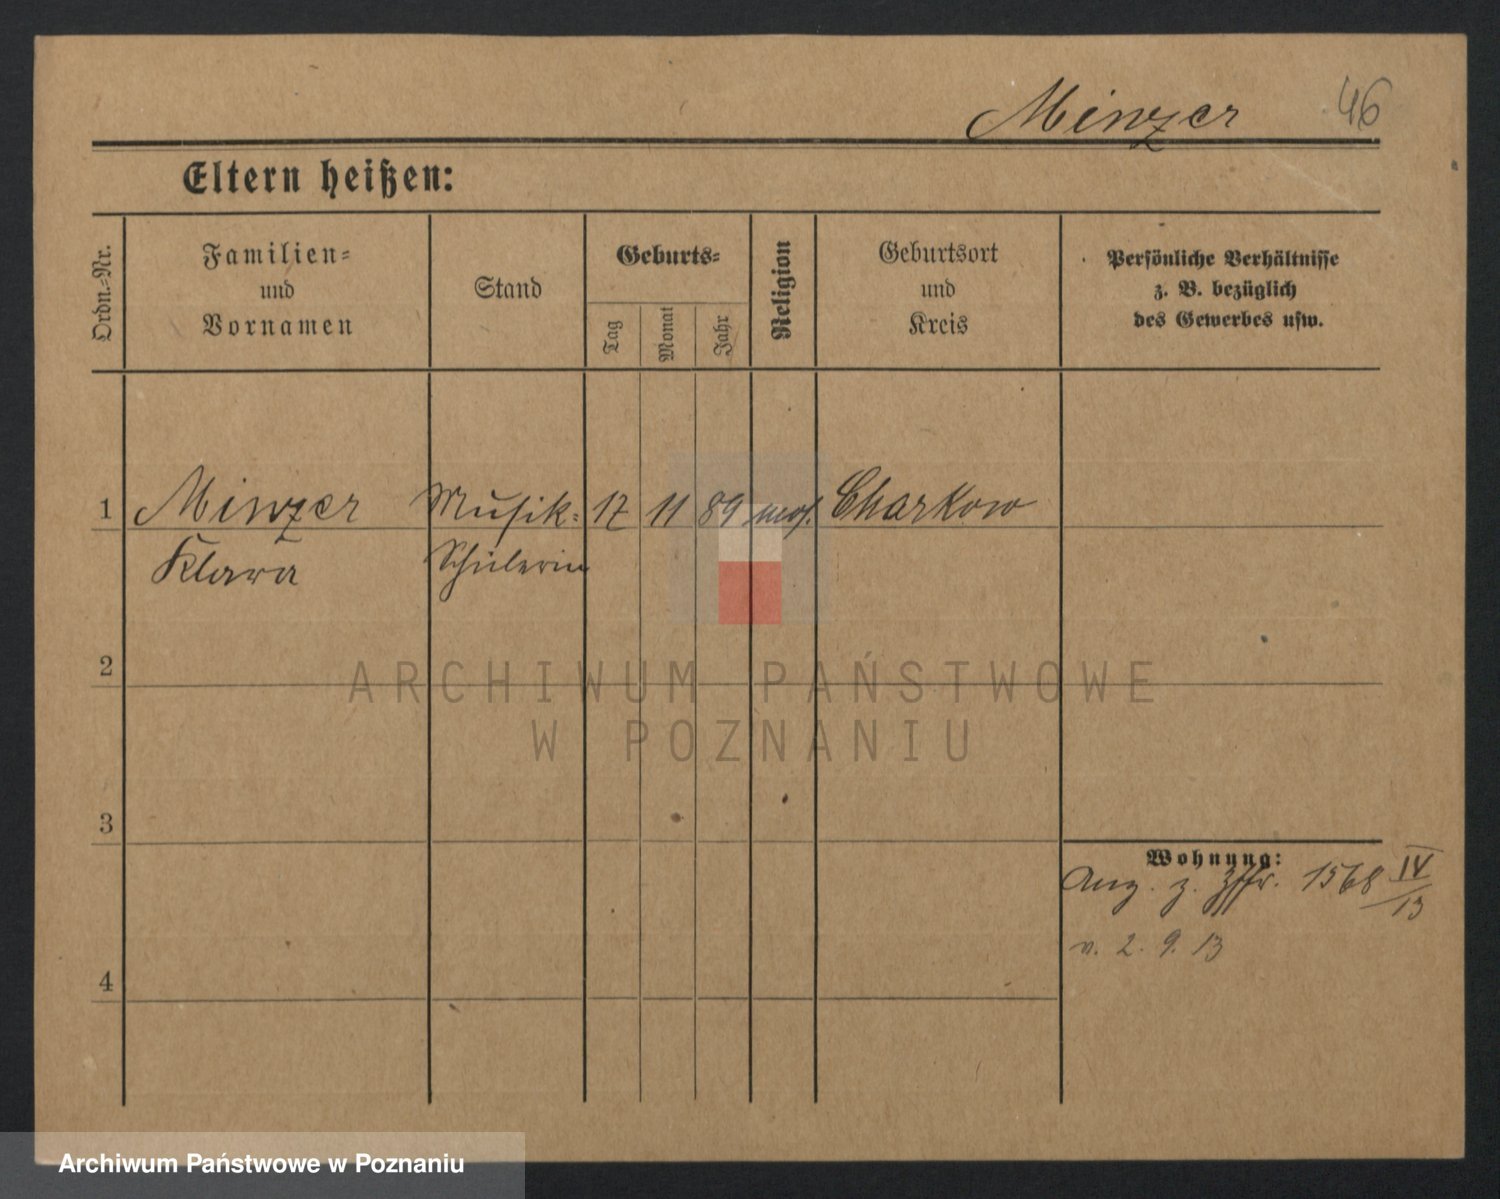 Minzer 46
Eltern heißen:
Ordn.-Nr.
Familien-
und
Vornamen
Stand
Geburts-
Tag
Monat
Jahr
Religion
Geburtsort
und
Kreis
Persönliche Verhältnisse
z. B. bezüglich
des Gewerbes usw.
1 Minzer Musik- 17 11 89 mos. Charkow
Klara Schülerin
2
3
Wohnung:
Ang. z. 1568 IV/13
v. 2. 9. 13
4
ARCHIWUM PAŃSTWOWE
W POZNANIU
Archiwum Państwowe w Poznaniu